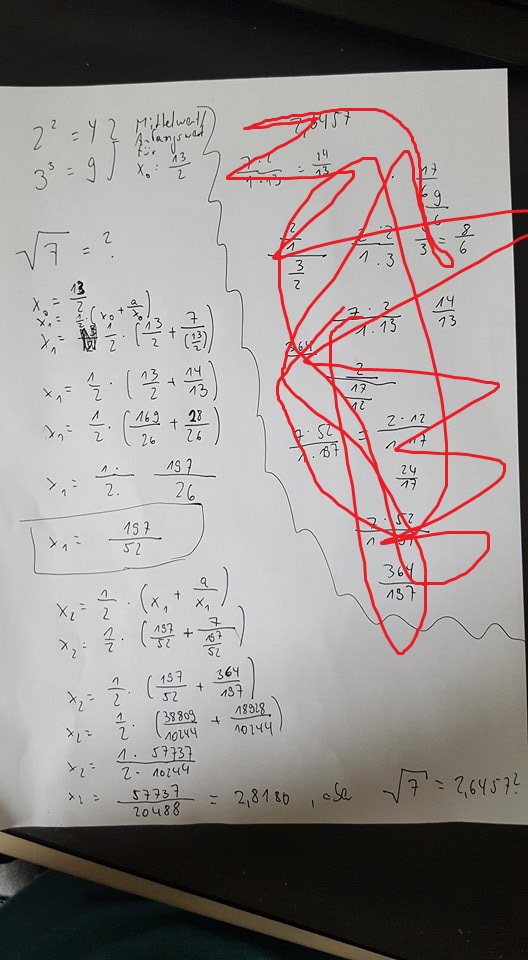 2² = 4 } Mittelwert/
3³ = 9 } Anfangswert
für
x₀ = 13/2
√7 = ?
x₀ = 13/2
x₁ = 1/2 · (x₀ + a/x₀)
x₁ = 1/2 · (13/2 + 7/(13/2))
x₁ = 1/2 · (13/2 + 14/13)
x₁ = 1/2 · (169/26 + 28/26)
x₁ = 1/2 · 197/26
x₁ = 197/52
x₂ = 1/2 · (x₁ + a/x₁)
x₂ = 1/2 · (197/52 + 7/(197/52))
x₂ = 1/2 · (197/52 + 364/197)
x₂ = 1/2 · (38809/10244 + 18928/10244)
x₂ = 1 · 57737/2 · 10244
x₂ = 57737/20488 = 2,8180 , oder √7 = 2,6457?
2,6457
7·2/1·13 = 14/13
17/6
9/6
2/1/3/2
2·2/1·3
4/3 = 8/6
7·2/1·13
14/13
364
2/17/12
7·52/1·197
= 2·12/1·17
24/17
7·52/1·197
364/197